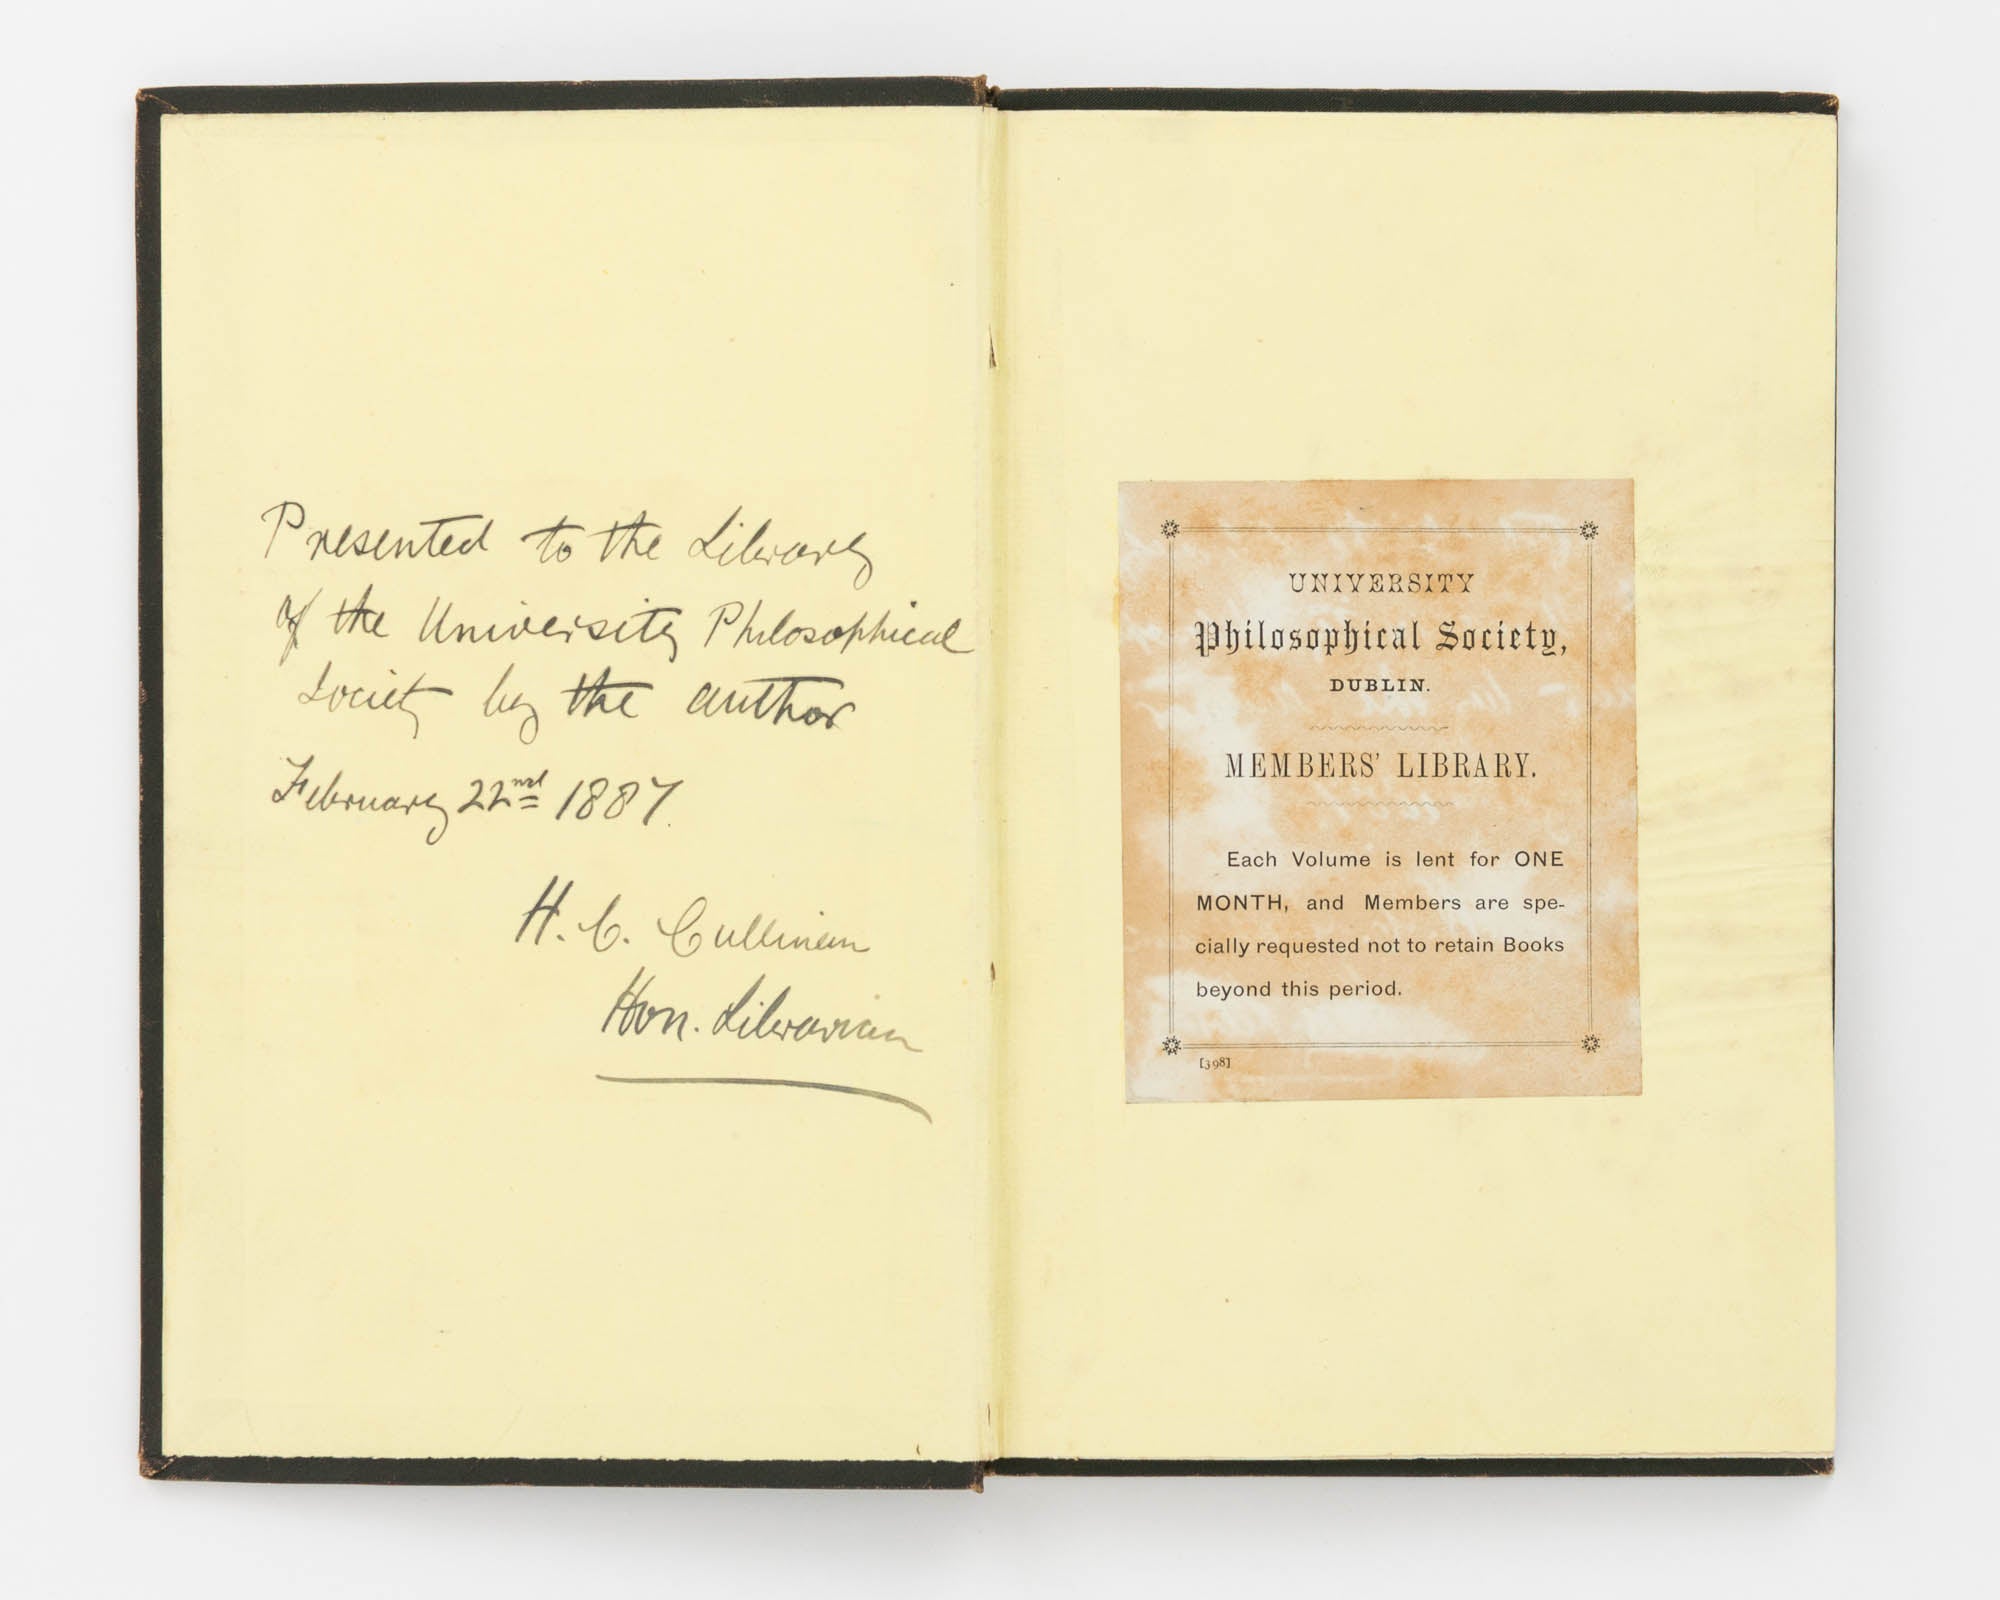 Presented to the Library
of the University Philosophical
Society by the author
February 22nd 1887.
H. C. Cullinan
Hon. Librarian
UNIVERSITY
Philosophical Society,
DUBLIN.
MEMBERS' LIBRARY.
Each Volume is lent for ONE
MONTH, and Members are spe-
cially requested not to retain Books
beyond this period.
[398]